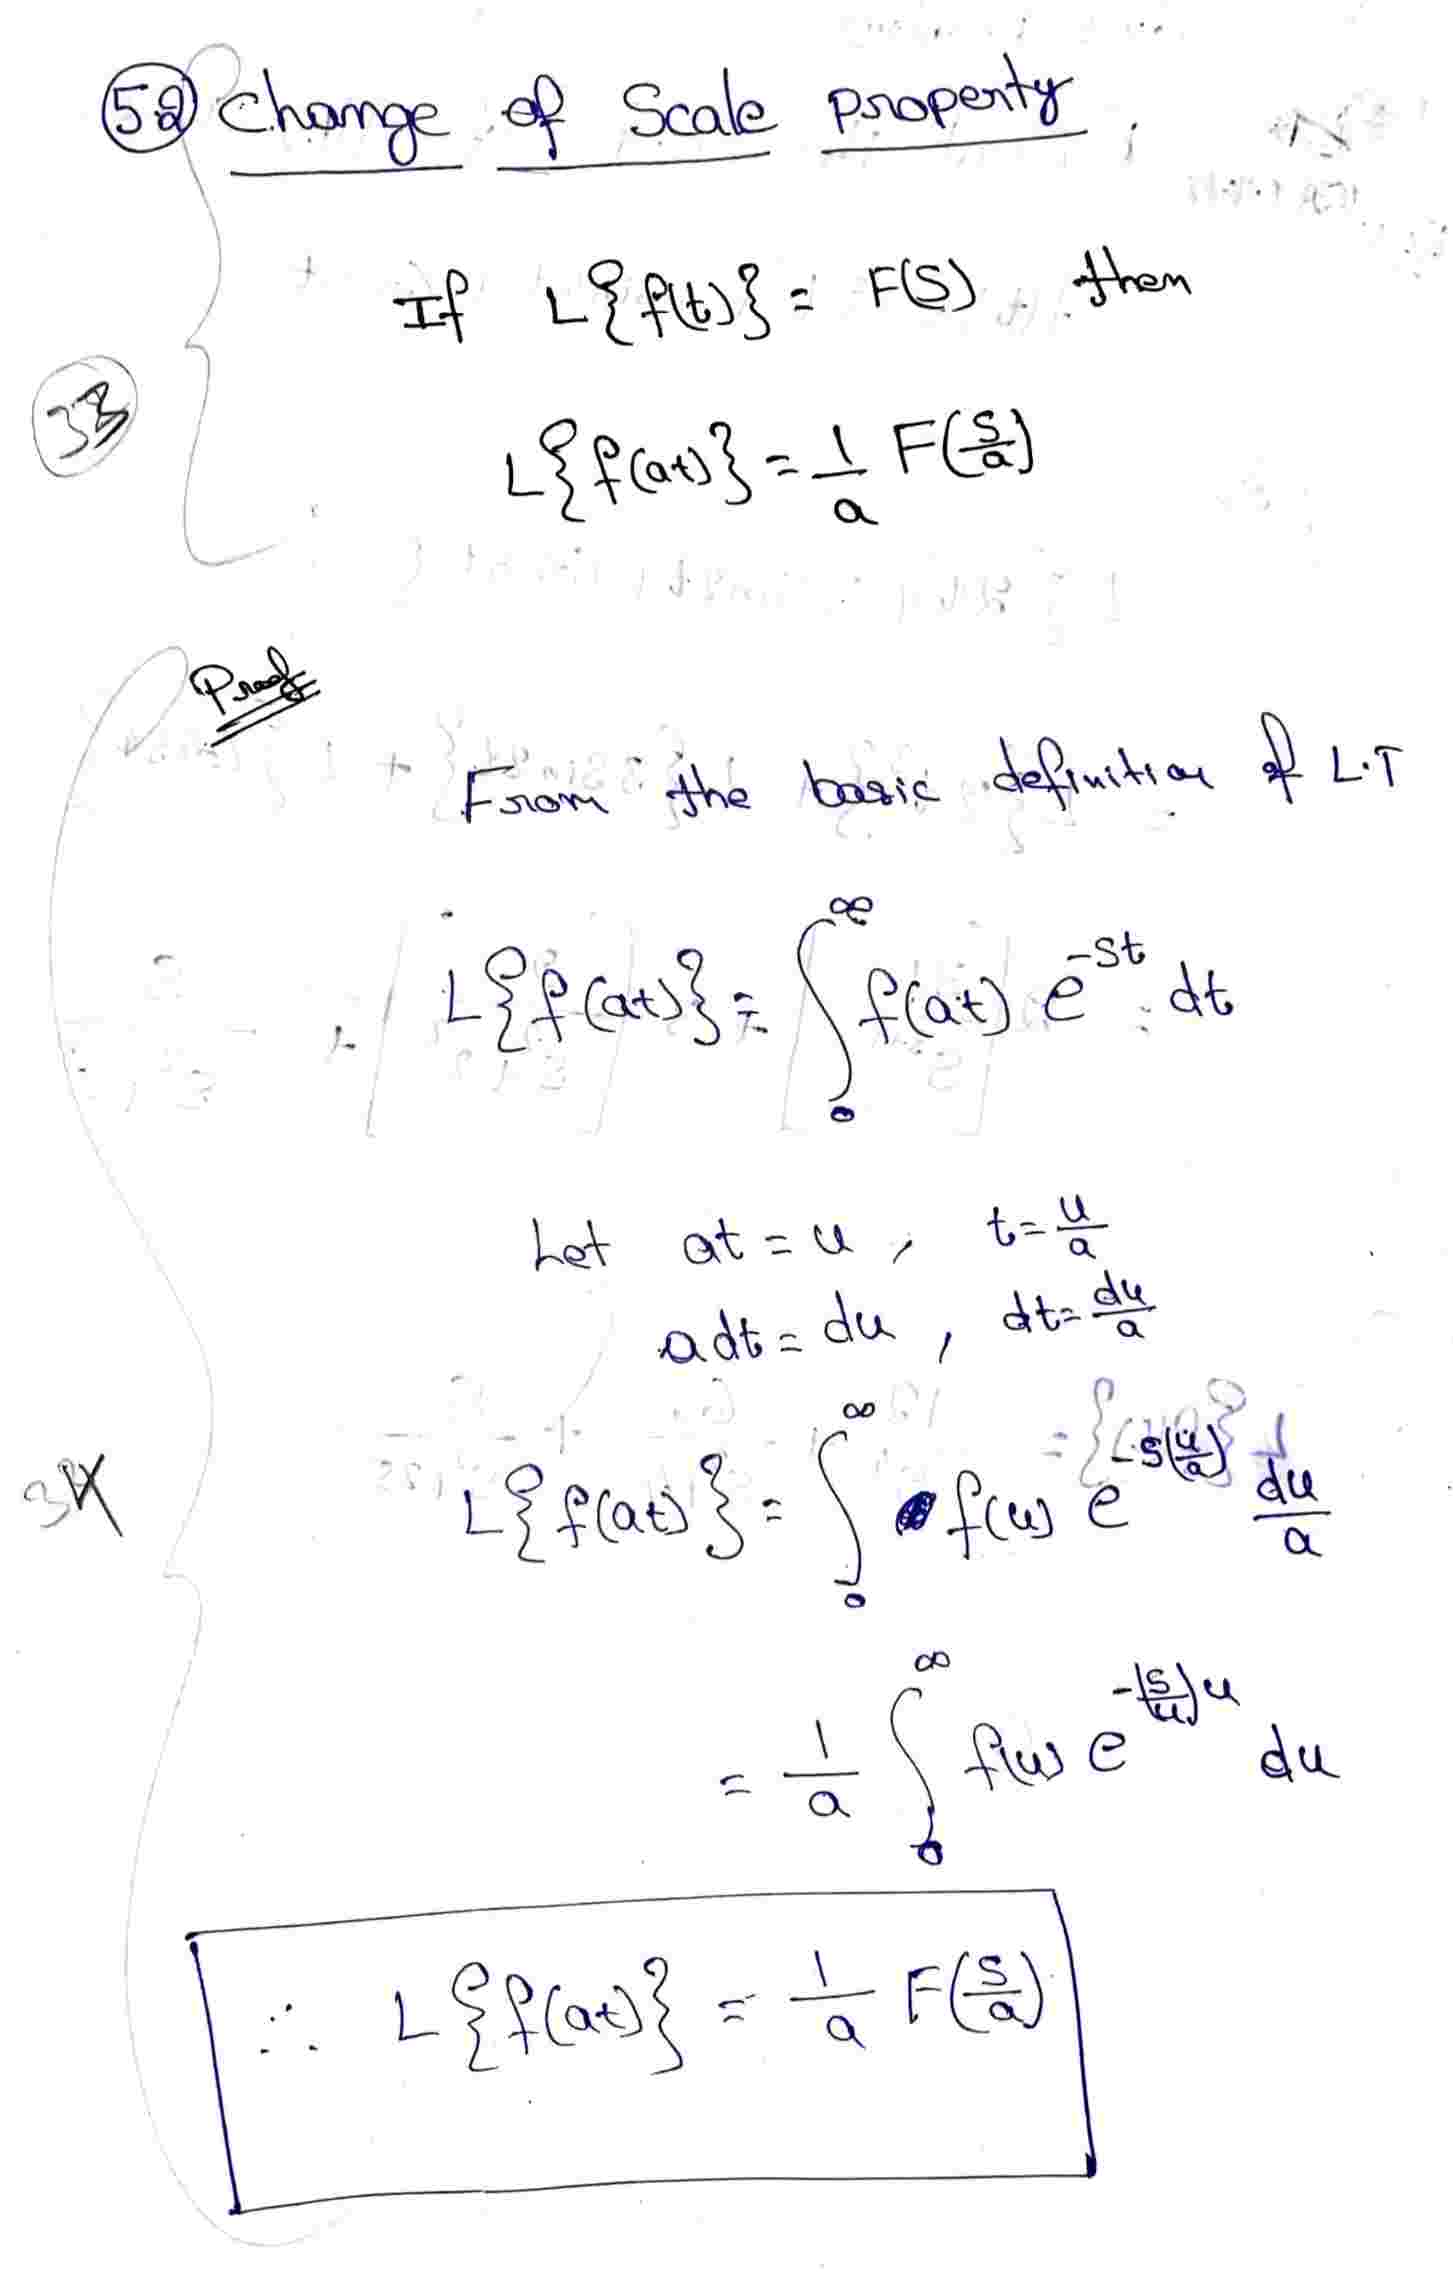 52 Change of Scale property
If L{f(t)} = F(S) then
33
L{f(at)} = 1/a F(S/a)
Proof
From the basic definition of L.T
L{f(at)} = ∫₀^∞ f(at) e^{-st} dt
Let at = u , t = u/a
adt = du , dt = du/a
L{f(at)} = ∫₀^∞ f(u) e^{-s(u/a)} du/a
34
= 1/a ∫₀^∞ f(u) e^{-(s/u)u} du
∴ L{f(at)} = 1/a F(S/a)